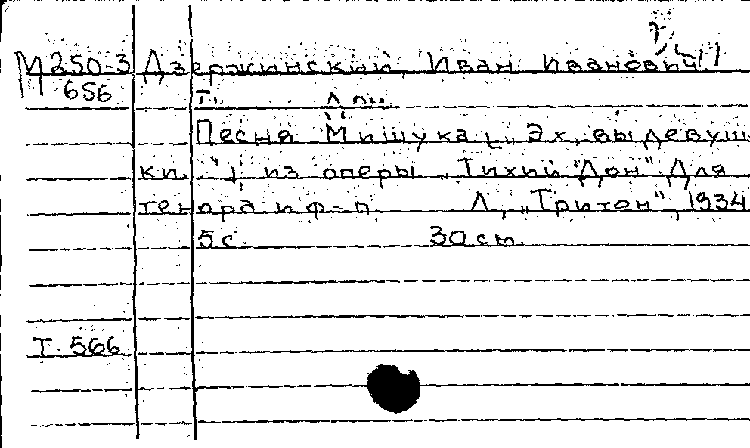 М250-3 Дзержинский, Иван Иванович
656
Песня Мишука [„Эх, вы девуш
ки..."] из оперы „Тихий Дон". Для
тенора и ф-п. Л., „Тритон", 1934
5 с. 30 см.
Т. 566